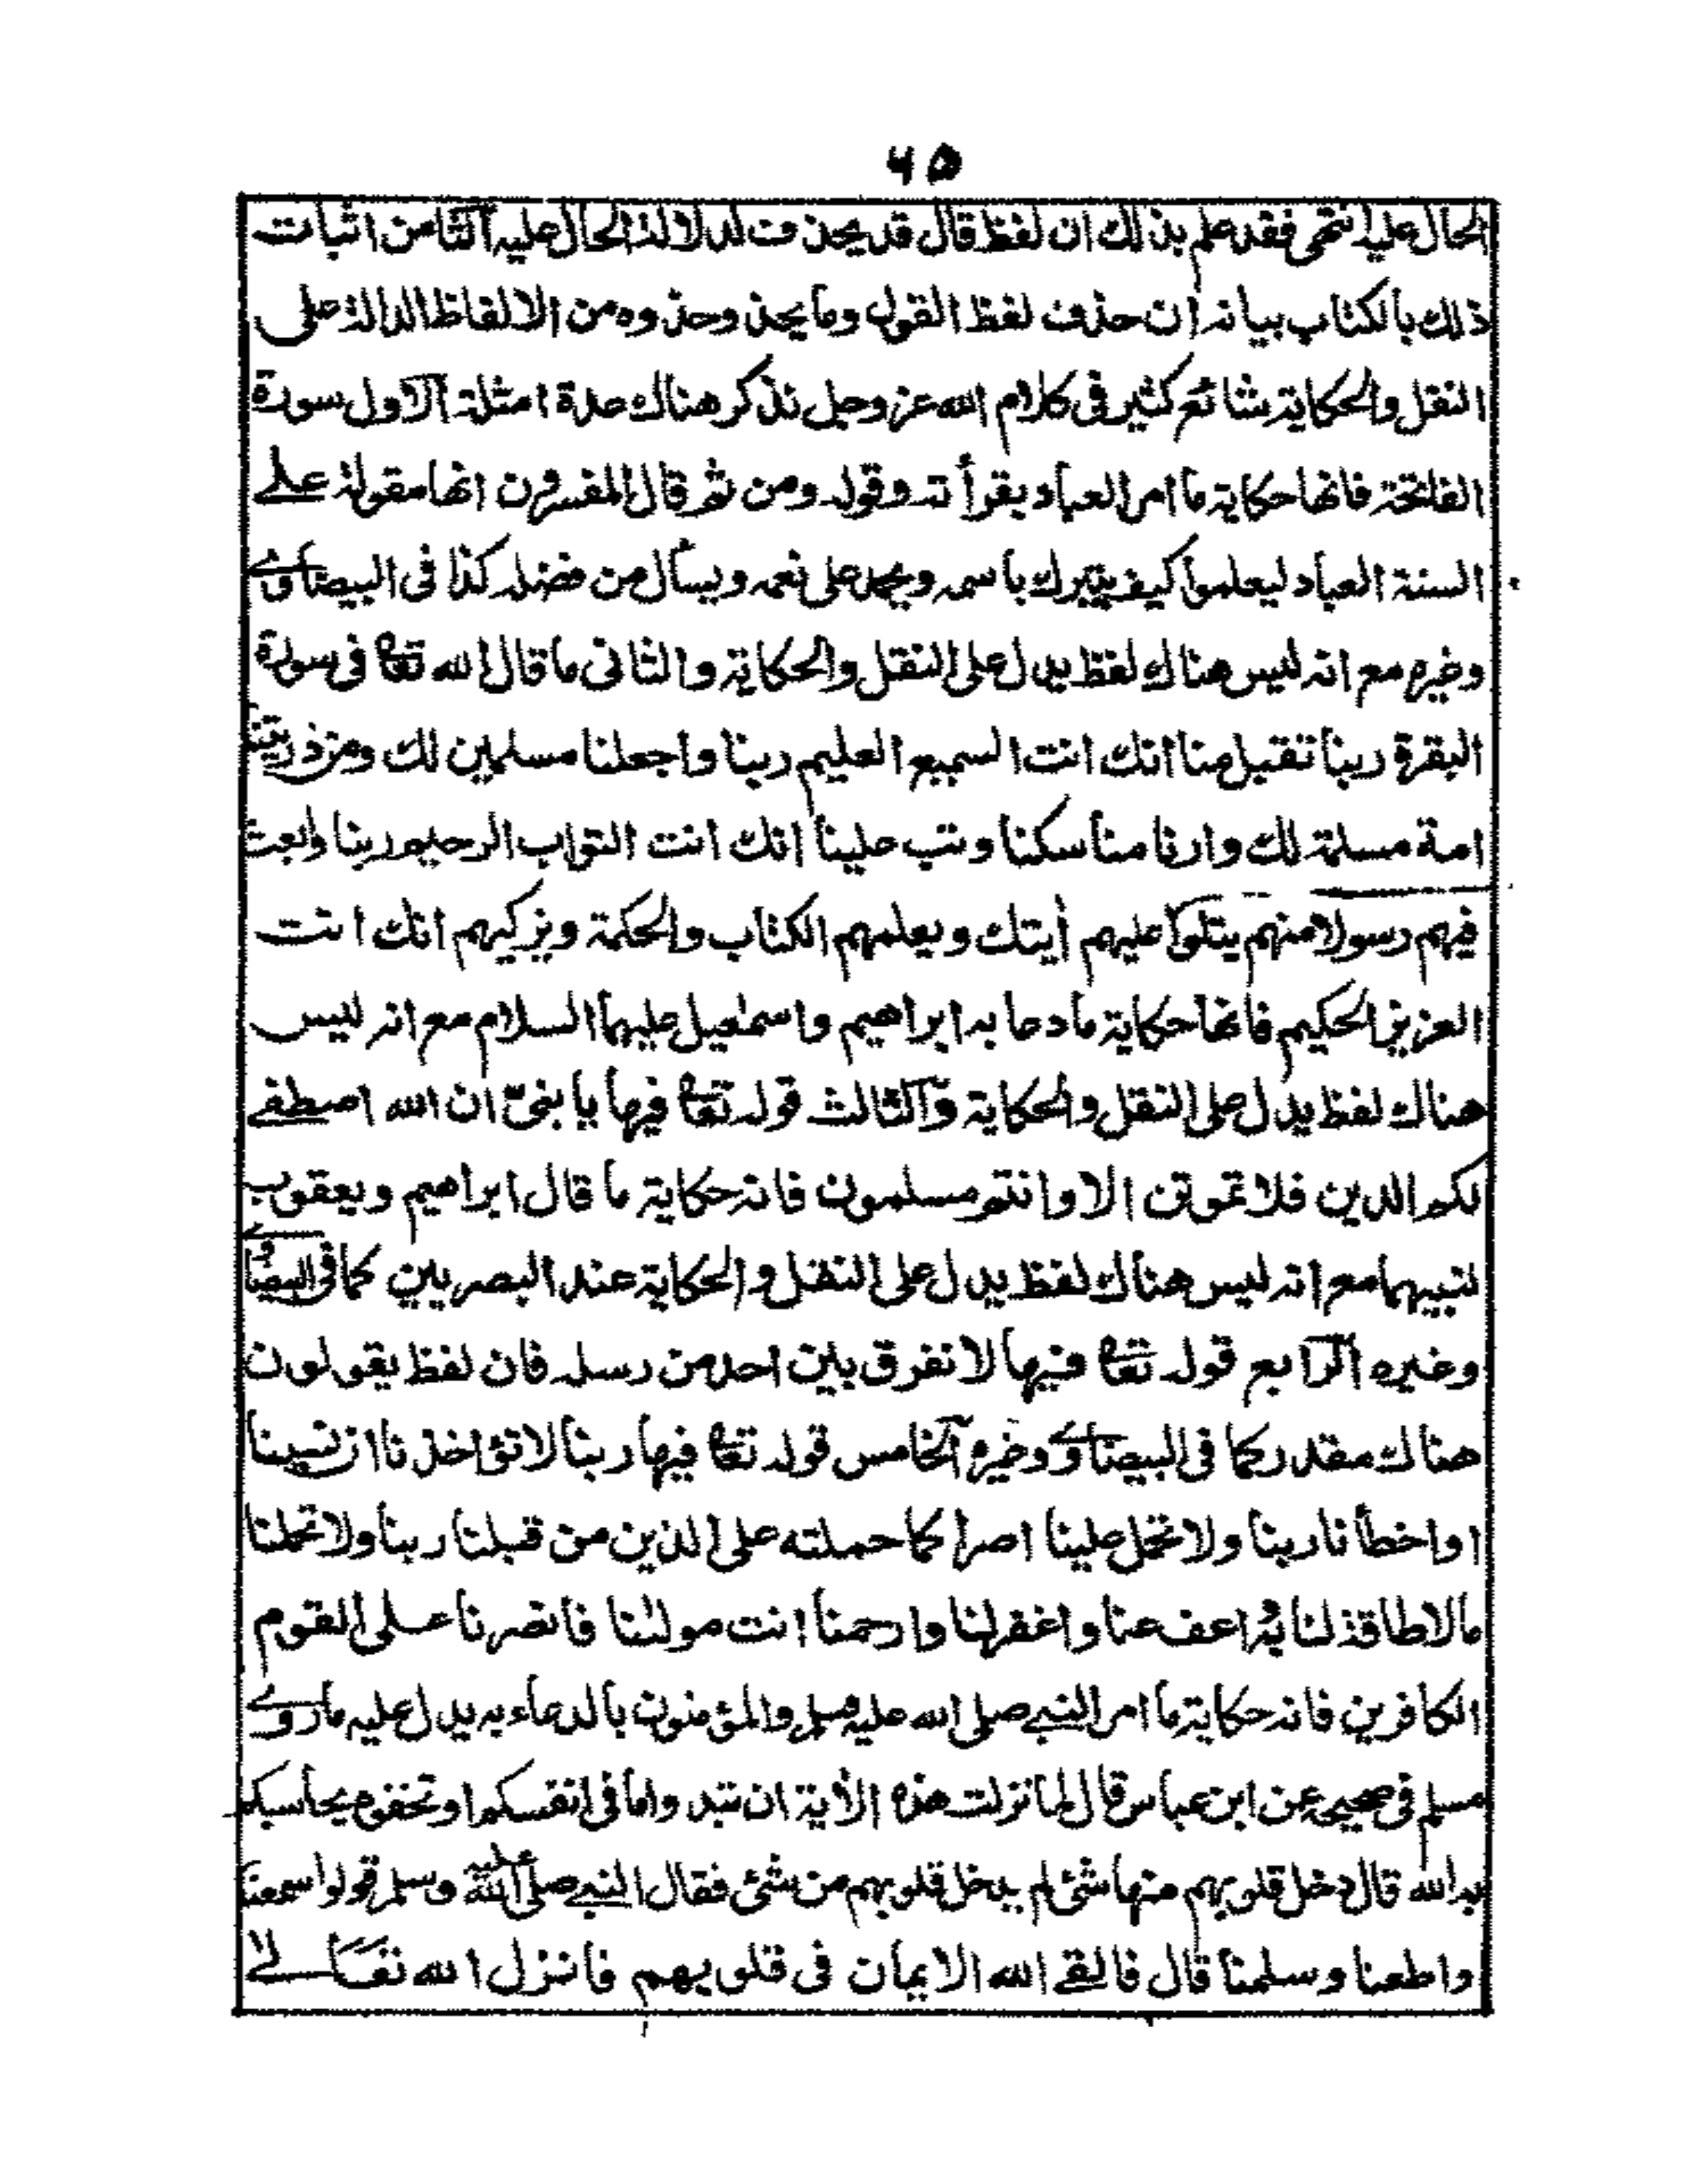 ٦٥
الحال عليه انتهى فقد علم بذلك ان لفظ قال قد يحذف لدلالة الحال عليه الثامن اثبات
ذلك بالكتاب بيانه ان حذف لفظ القول وما يحذو حذوه من الالفاظ الدالة على
النقل والحكاية شائع كثير فى كلام الله عز وجل نذكر هناك عدة امثلة الاول سورة
الفاتحة فانها حكاية ما امر العباد بقرأته وقوله ومن ثم قال المفسرون انها مقولة على
السنة العباد ليعلموا كيف يتبرك باسمه ويحمد على نعمه ويسأل من فضله كذا فى البيضاوى
وغيره مع انه ليس هناك لفظ يدل على النقل والحكاية والثانى ما قال الله تعا فى سورة
البقرة ربنا تقبل منا انك انت السميع العليم ربنا واجعلنا مسلمين لك ومن ذريتنا
امة مسلمة لك وارنا مناسكنا وتب علينا انك انت التواب الرحيم ربنا وابعث
فيهم رسولا منهم يتلوا عليهم أيتك ويعلمهم الكتاب والحكمة ويزكيهم انك انت
العزيز الحكيم فانها حكاية ما دعا به ابراهيم واسماعيل عليهما السلام مع انه ليس
هناك لفظ يدل على النقل والحكاية والثالث قوله تعا فيها يا بنىّ ان الله اصطفى
لكم الدين فلا تموتن الا وانتم مسلمون فانه حكاية ما قال ابراهيم ويعقوب
لنبيهما مع انه ليس هناك لفظ يدل على النقل والحكاية عند البصريين كما فى البيضاوى
وغيره الرابع قوله تعا فيها لا نفرق بين احد من رسله فان لفظ يقولون
هناك مقدر كما فى البيضاوى وغيره الخامس قوله تعا فيها ربنا لا تؤاخذنا ان نسينا
او اخطأنا ربنا ولا تحمل علينا اصرا كما حملته على الذين من قبلنا ربنا ولا تحملنا
ما لا طاقة لنا به واعف عنا واغفر لنا وارحمنا انت مولنا فانصرنا على القوم
الكافرين فانه حكاية ما امر النبى صلى الله عليه وسلم والمؤمنون بالدعاء به يدل عليه ما روى
مسلم فى صحيحه عن ابن عباس قال لما نزلت هذه الأية ان تبدوا ما فى انفسكم او تخفوه يحاسبكم
به الله قال دخل قلوبهم منها شئ لم يدخل قلوبهم من شئ فقال النبى صلى الله عليه وسلم قولوا سمعنا
واطعنا وسلمنا قال فالقى الله الايمان فى قلوبهم فانزل الله تعالى